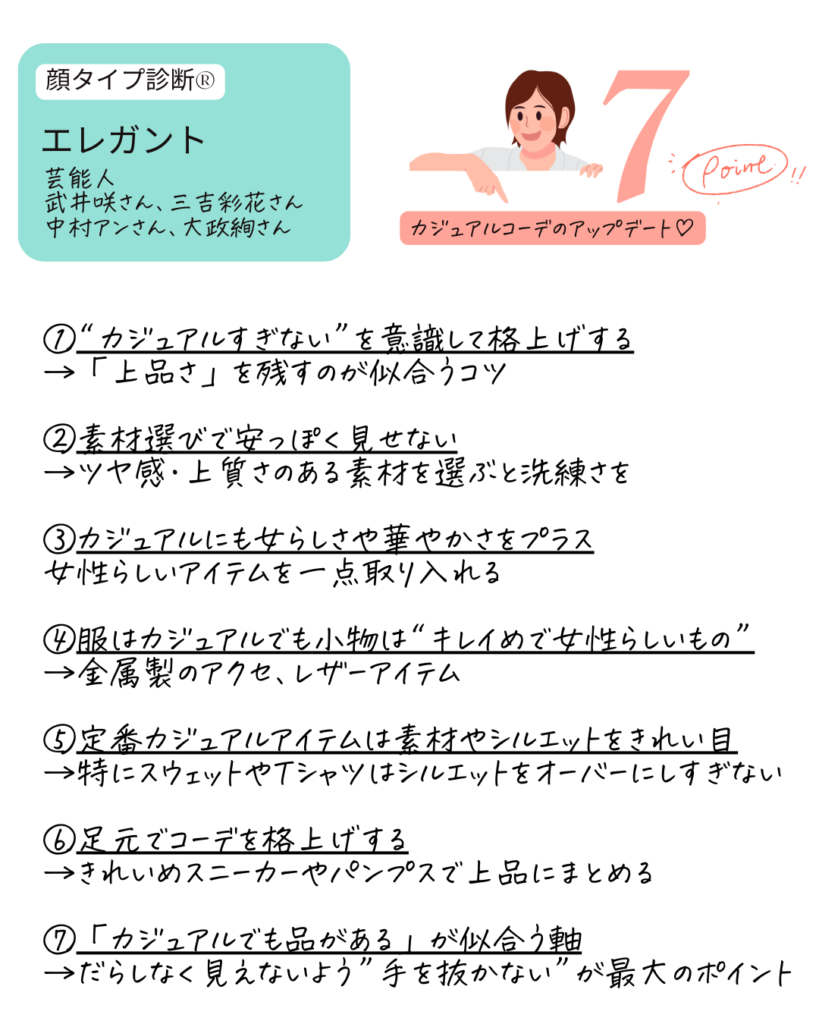 顔タイプ診断®
エレガント
芸能人
武井咲さん、三吉彩花さん
中村アンさん、大政絢さん
7
Point!!
カジュアルコーデのアップデート♡
①“カジュアルすぎない”を意識して格上げする
→「上品さ」を残すのが似合うコツ
②素材選びで安っぽく見せない
→ツヤ感・上質さのある素材を選ぶと洗練さを
③カジュアルにも女らしさや華やかさをプラス
女性らしいアイテムを一点取り入れる
④服はカジュアルでも小物は“キレイめで女性らしいもの”
→金属製のアクセ、レザーアイテム
⑤定番カジュアルアイテムは素材やシルエットをきれい目
→特にスウェットやTシャツはシルエットをオーバーにしすぎない
⑥足元でコーデを格上げする
→きれいめスニーカーやパンプスで上品にまとめる
⑦「カジュアルでも品がある」が似合う軸
→だらしなく見えないよう”手を抜かない”が最大のポイント